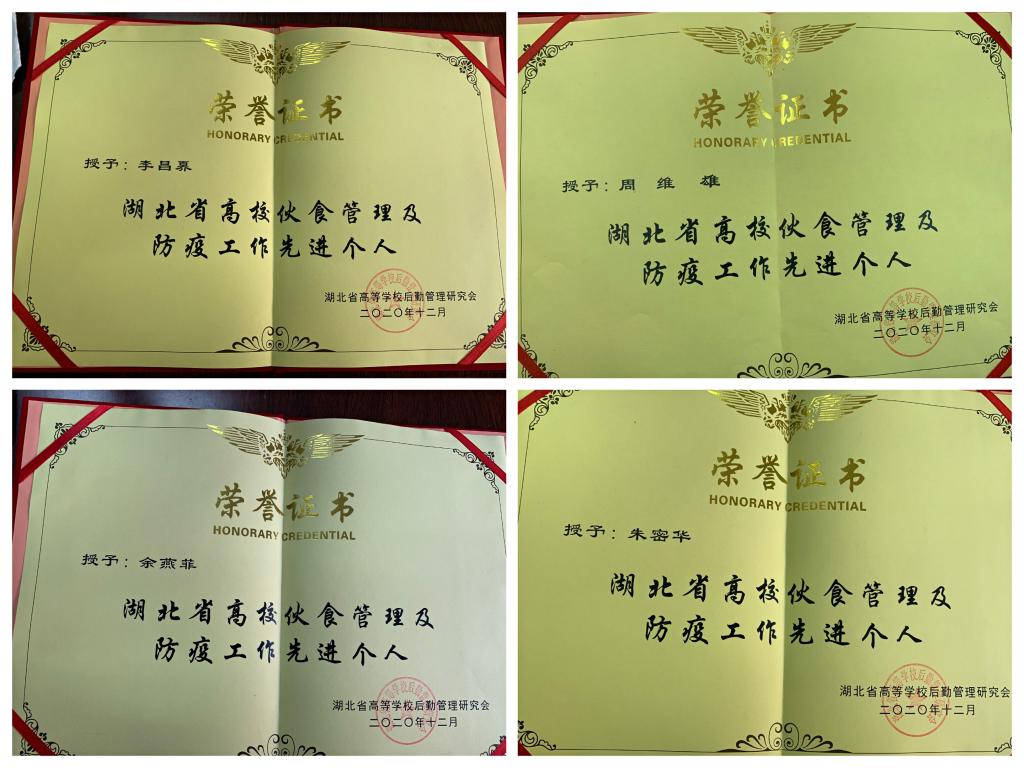 荣誉证书
HONORARY CREDENTIAL
授予：李昌暴
湖北省高校伙食管理及
防疫工作先进个人
湖北省高等学校后勤管理研究会
二〇二〇年十二月
荣誉证书
HONORARY CREDENTIAL
授予：周 维 雄
湖北省高校伙食管理及
防疫工作先进个人
湖北省高等学校后勤管理研究会
二〇二〇年十二月
荣誉证书
HONORARY CREDENTIAL
授予：余燕菲
湖北省高校伙食管理及
防疫工作先进个人
湖北省高等学校后勤管理研究会
二〇二〇年十二月
荣誉证书
HONORARY CREDENTIAL
授予：朱密华
湖北省高校伙食管理及
防疫工作先进个人
湖北省高等学校后勤管理研究会
二〇二〇年十二月